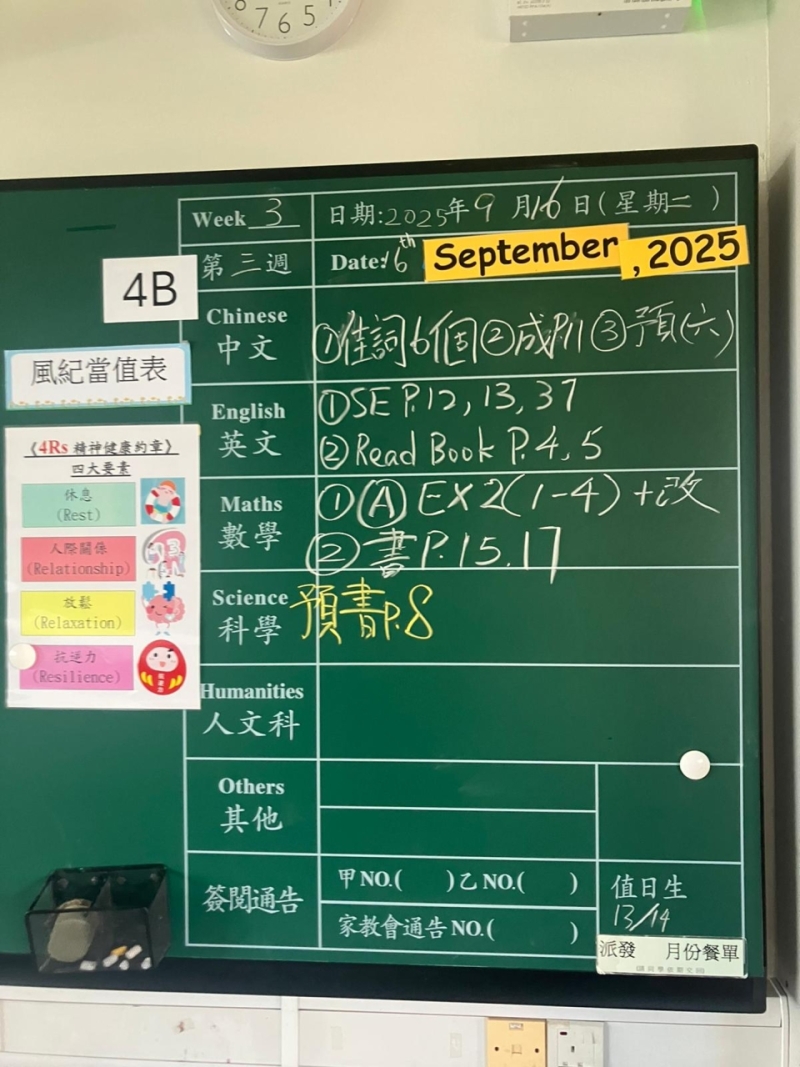 8 7 6 5
Week 3
日期:2025年9月16日(星期二)
第三週
Date:16th September, 2025
4B
Chinese
中文
①佳詞6個②成P.11③預(六)
風紀當值表
English
英文
①SE P.12, 13, 37
②Read Book P.4, 5
《4Rs 精神健康約章》
四大要素
休息
(Rest)
人際關係
(Relationship)
放鬆
(Relaxation)
抗逆力
(Resilience)
Maths
數學
①Ⓐ EX 2(1-4)+改
②書P.15.17
Science
科學
預書P.8
Humanities
人文科
Others
其他
簽閱通告
甲NO.( )乙NO.( )
家教會通告NO.( )
值日生
13/14
派發 月份餐單